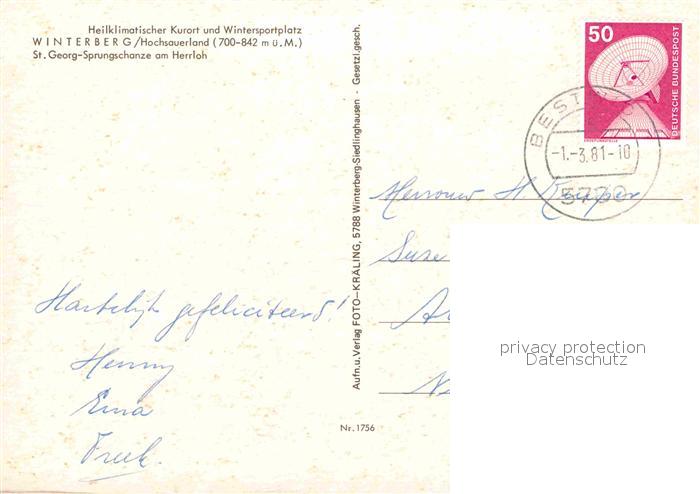 Heilklimatischer Kurort und Wintersportplatz
WINTERBERG/Hochsauerland (700-842 m ü.M.)
St. Georg-Sprungschanze am Herrloh
Hartelijk gefeliciteerd!
Henny
Erna
Freek.
Aufn.u.Verlag FOTO-KRÄLING, 5788 Winterberg-Siedlinghausen - Gesetzl.gesch.
Nr.1756
50
DEUTSCHE BUNDESPOST
-1.-3.81-10
Mevrouw H.
privacy protection
Datenschutz